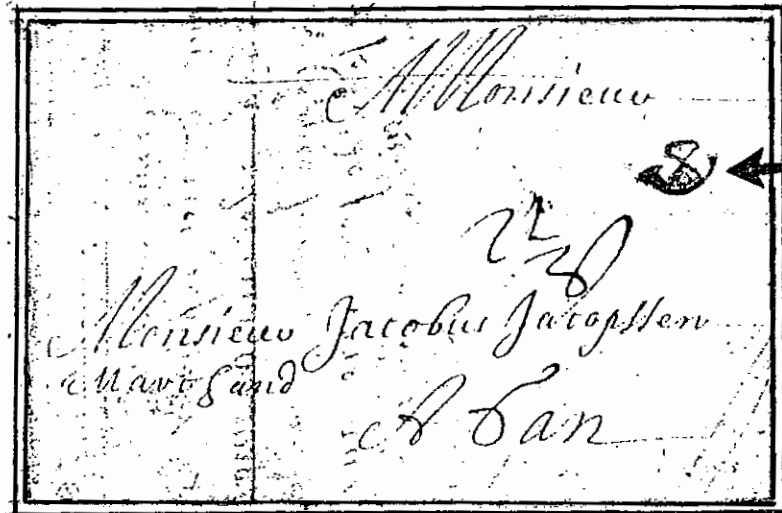 A Monsieur
Monsieur Jacobus Jacopssen
Marchand
A